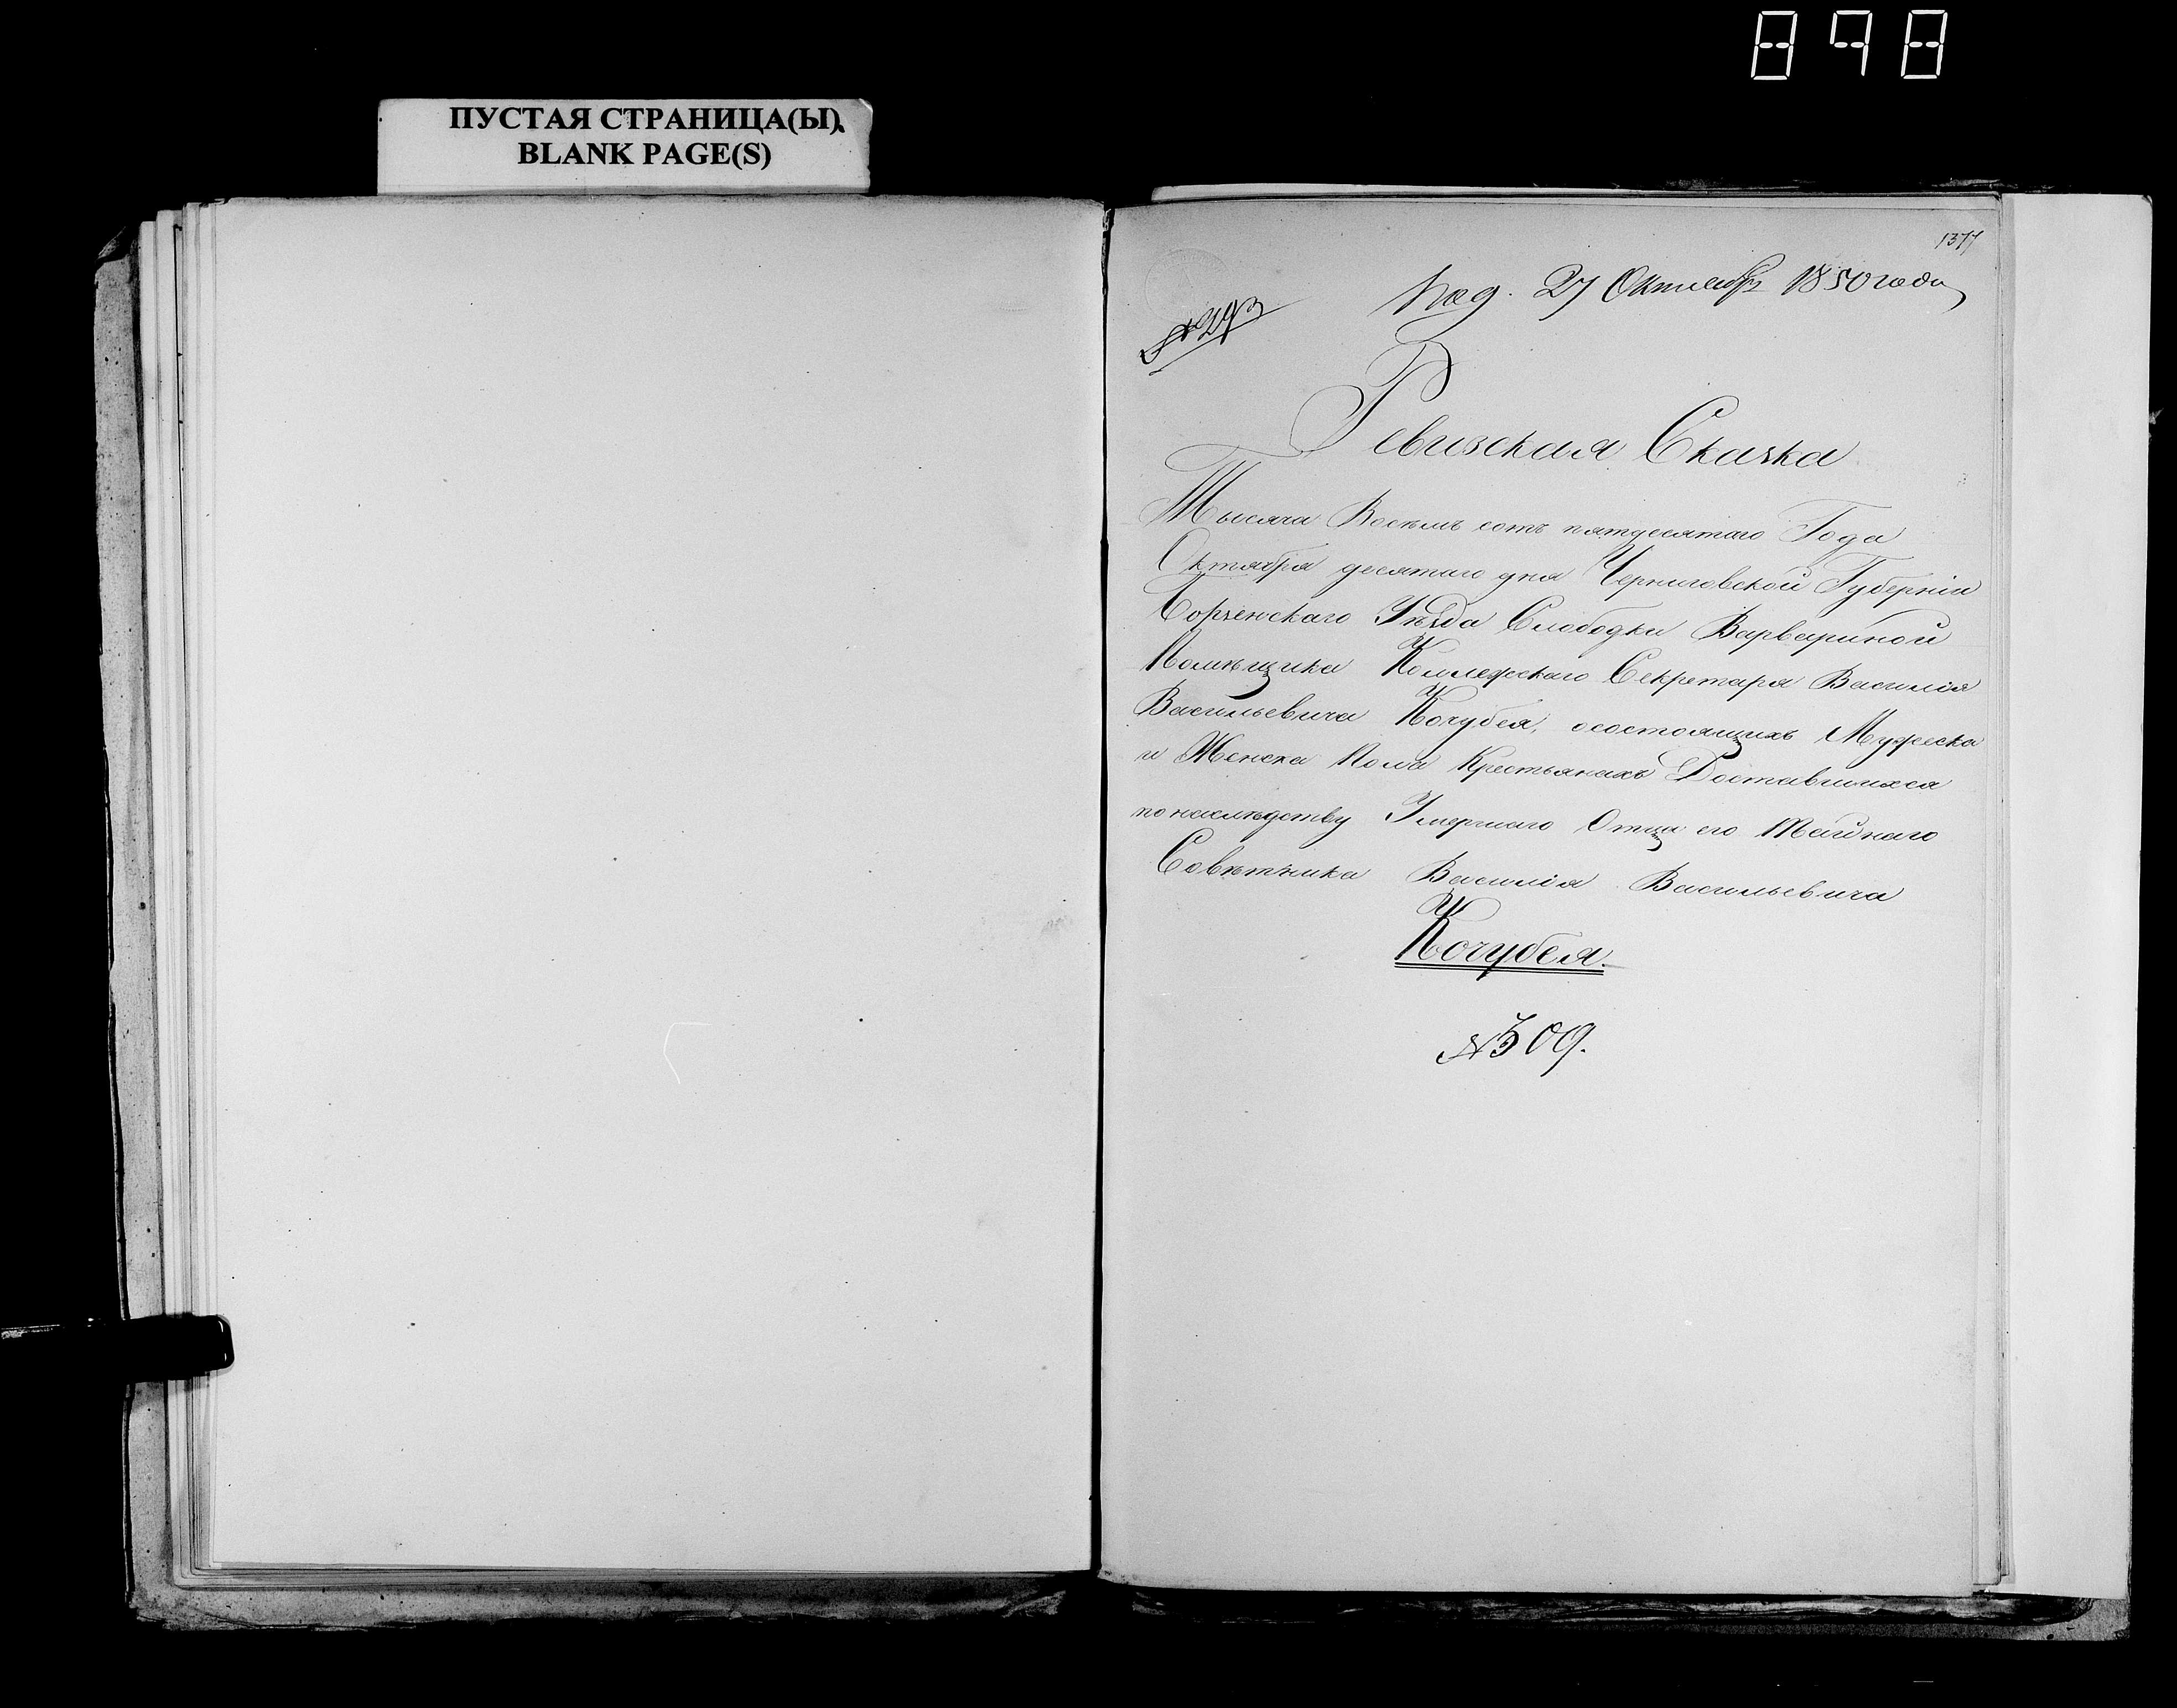 898
ПУСТАЯ СТРАНИЦА(Ы)
BLANK PAGE(S)
1377
Под. 27 Октября 1850 года
№ 293
Ревизская Сказка
Тысяча Восемь сотъ пятдесятаго Года
Октября десятаго дня Черниговской Губерніи
Борзенскаго Уѣзда Слободки Варвариной
Помѣщика Коллежскаго Секретаря Василія
Васильевича Кочубея, осостоящихъ Мужеска
и Женска Пола Крестьянахъ Доставшихся
по наслѣдству Умершаго Отца его Тайнаго
Совѣтника Василія Васильевича
Кочубея.
№ 309.